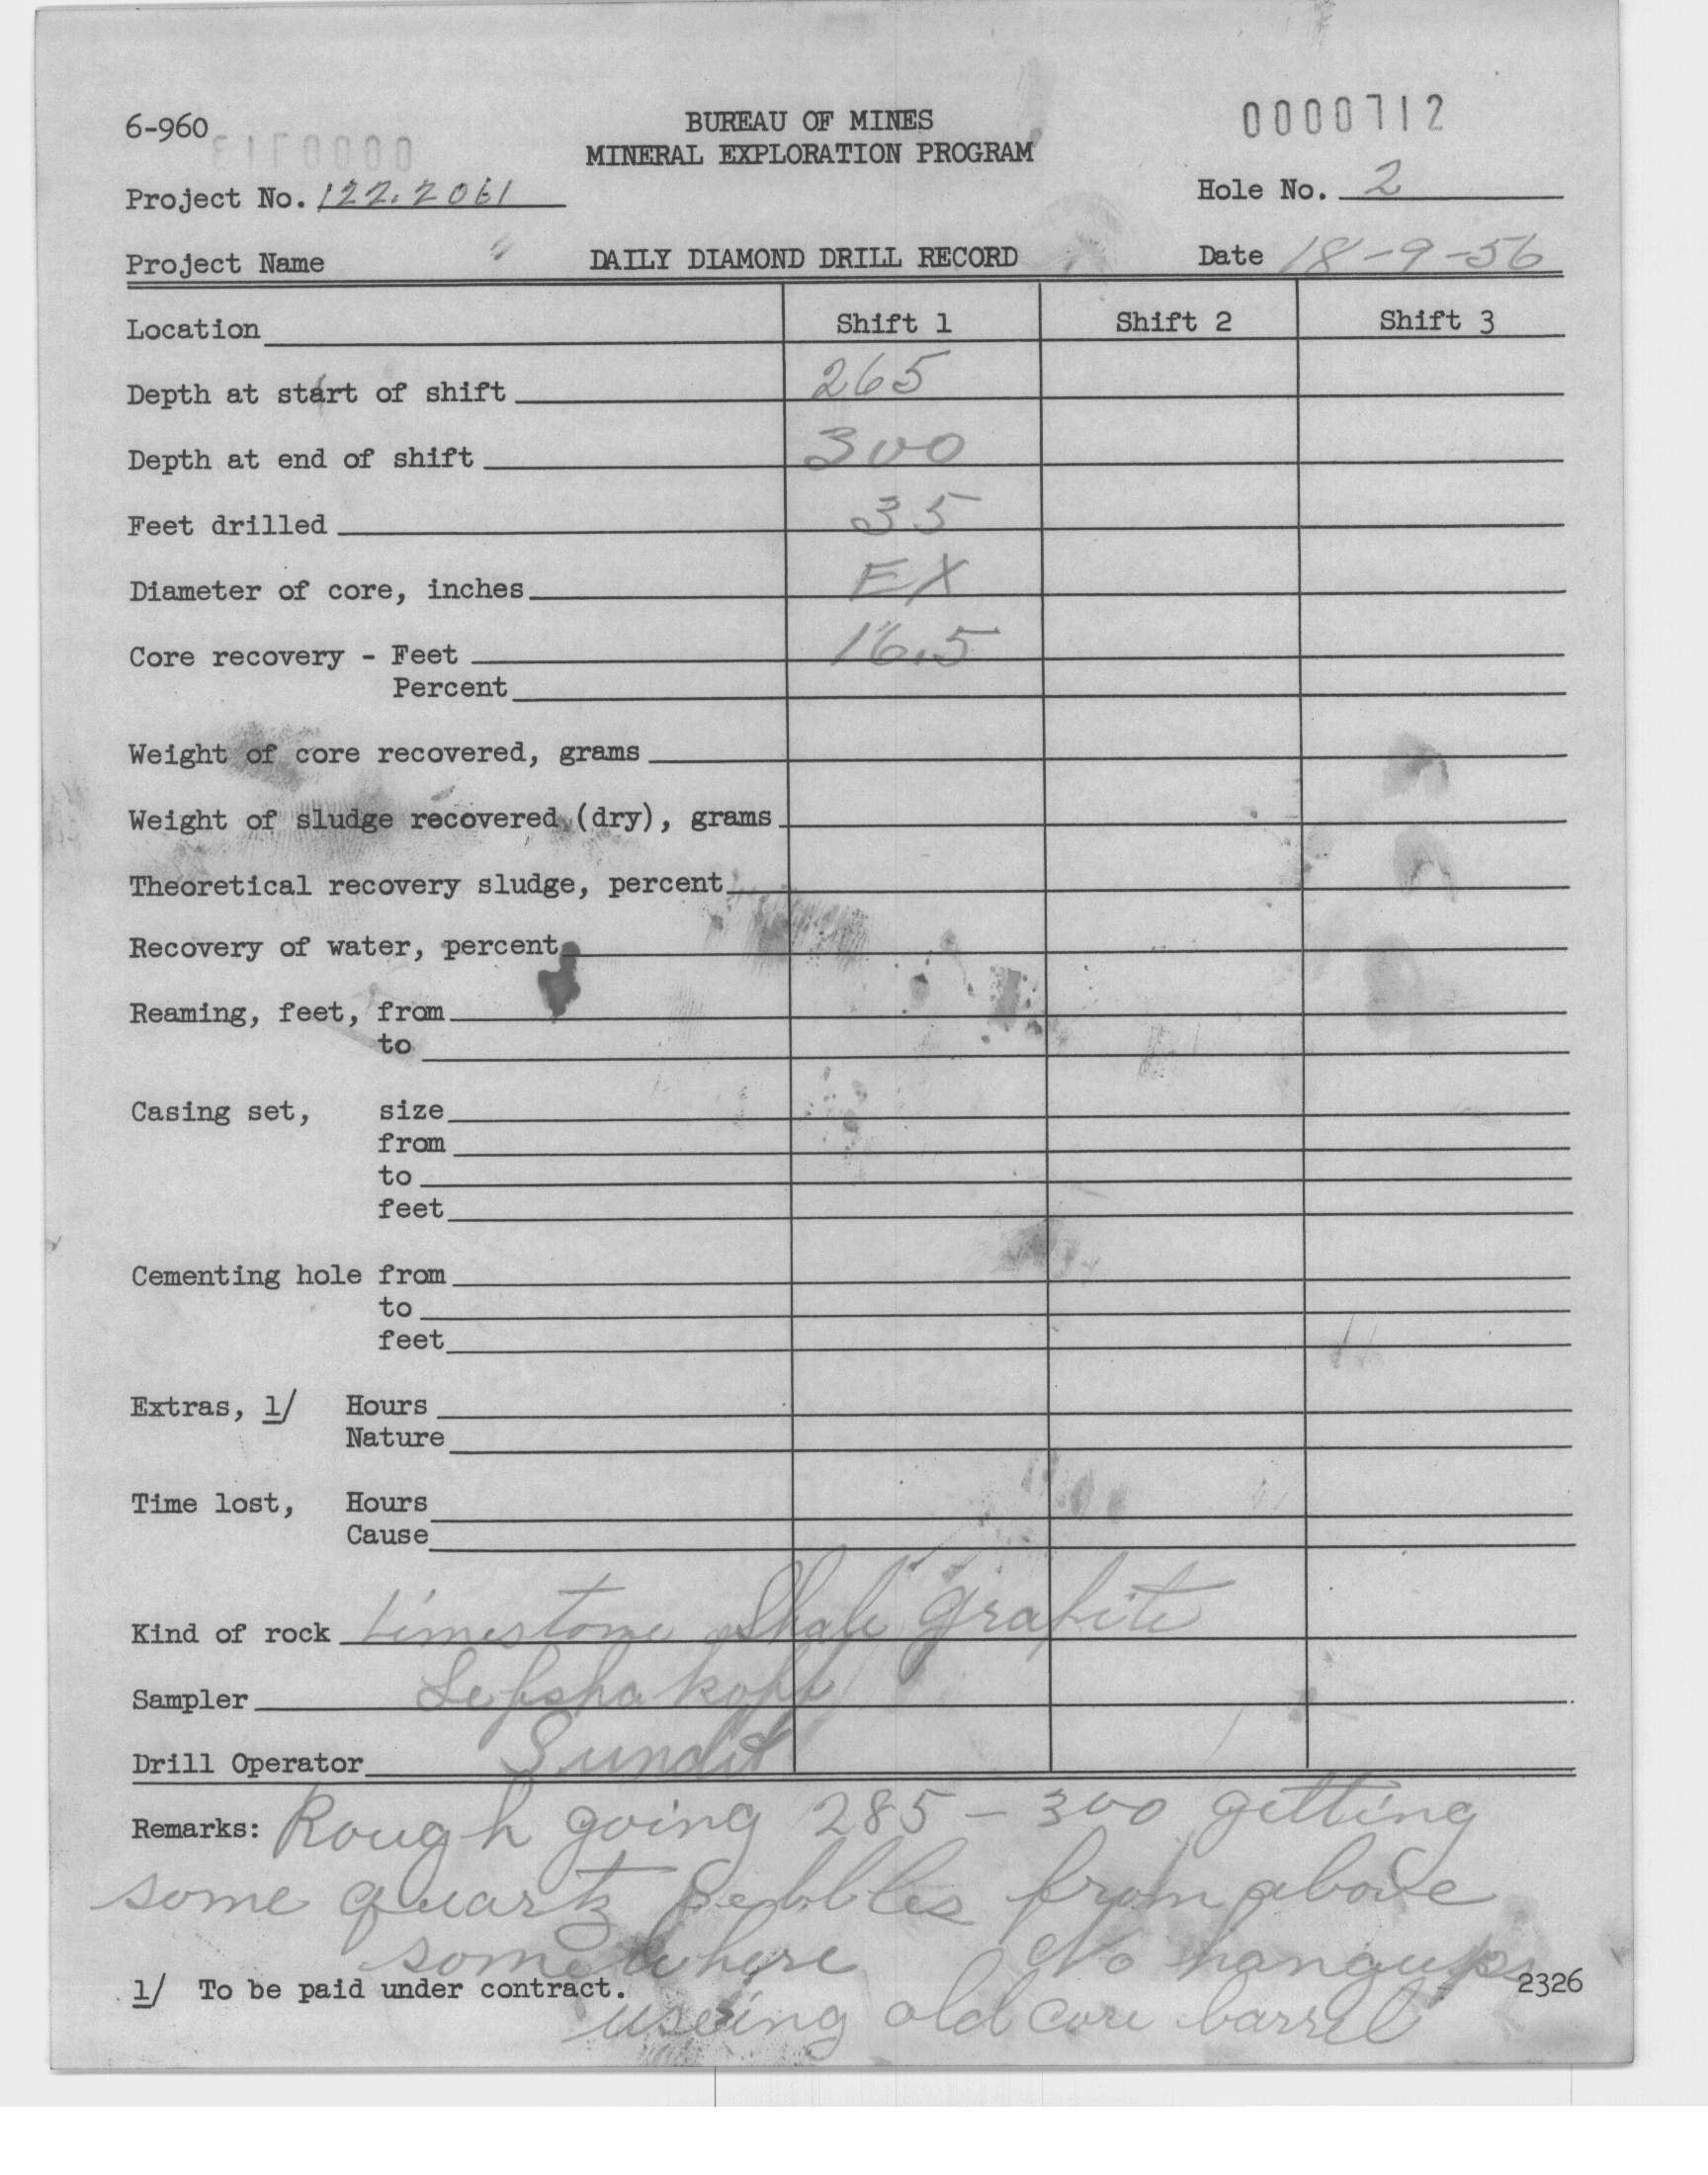 6-960
BUREAU OF MINES
0000712
MINERAL EXPLORATION PROGRAM
Project No. 122.2061
Hole No. 2
Project Name
DAILY DIAMOND DRILL RECORD
Date 18-9-56
Location Shift 1 Shift 2 Shift 3
Depth at start of shift 265
Depth at end of shift 300
Feet drilled 35
Diameter of core, inches EX
Core recovery - Feet 16.5
Percent
Weight of core recovered, grams
Weight of sludge recovered (dry), grams
Theoretical recovery sludge, percent
Recovery of water, percent
Reaming, feet, from
to
Casing set, size
from
to
feet
Cementing hole from
to
feet
Extras, 1/ Hours
Nature
Time lost, Hours
Cause
Kind of rock Limestone Shale Grafite
Sampler
Drill Operator
Remarks: Rough going 285 - 300 getting
some quartz pebbles from above
somewhere No hangups
1/ To be paid under contract. 2326
useing old core barrel